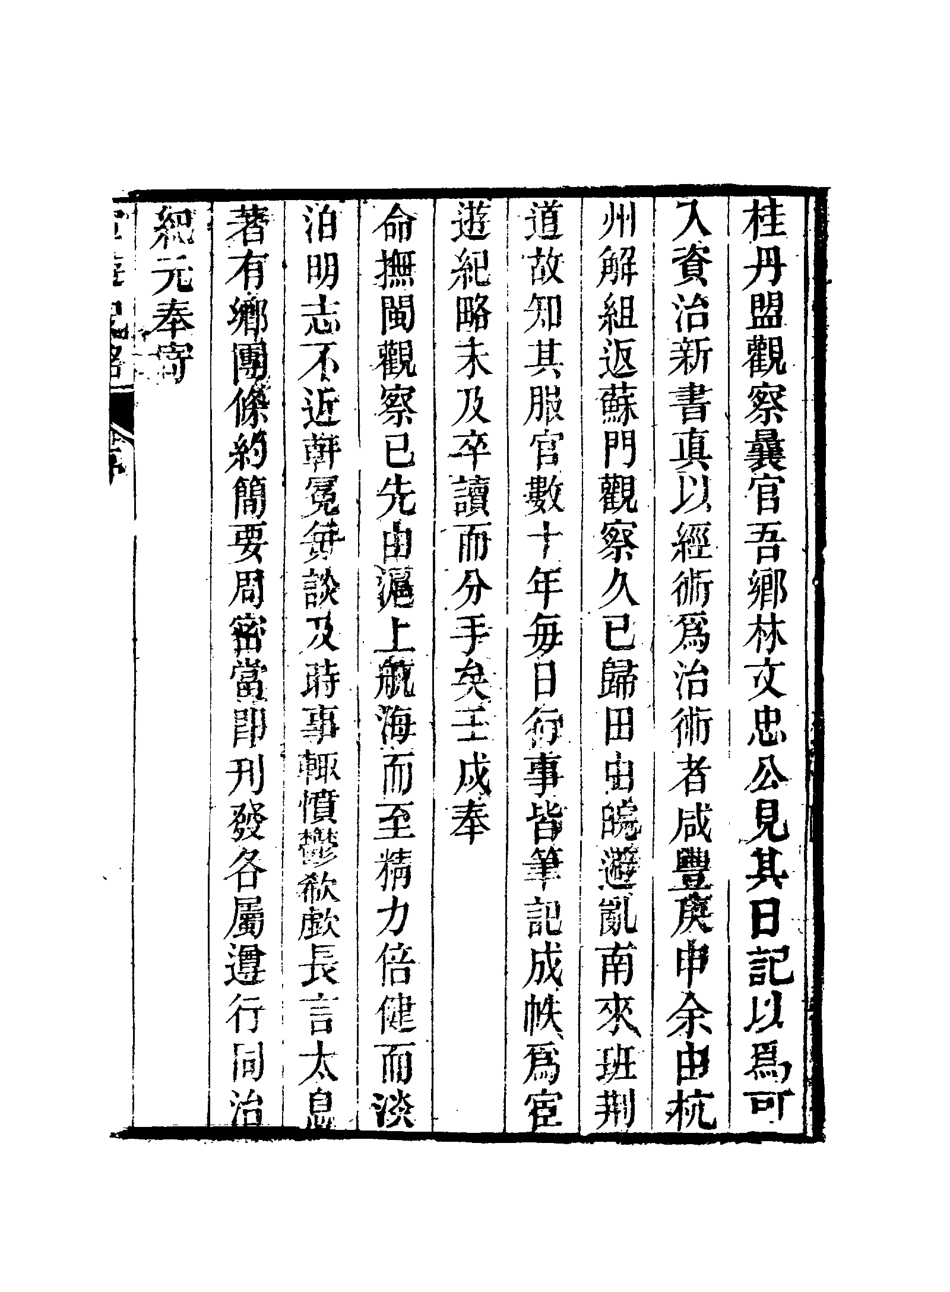 桂丹盟觀察曩官吾鄉林文忠公見其日記以爲可
入資治新書真以經術爲治術者咸豐庚申余由杭
州解組返蘇門觀察久已歸田由皖避亂南來班荆
道故知其服官數十年每日行事皆筆記成帙爲宦
遊紀略未及卒讀而分手矣壬戌奉
命撫閩觀察已先由滬上航海而至精力倍健而淡
泊明志不近軒冕每談及時事輒憤鬱欷歔長言太息
著有鄉團條約簡要周密當即刊發各屬遵行同治
紀元奉寄
宦遊紀略
序